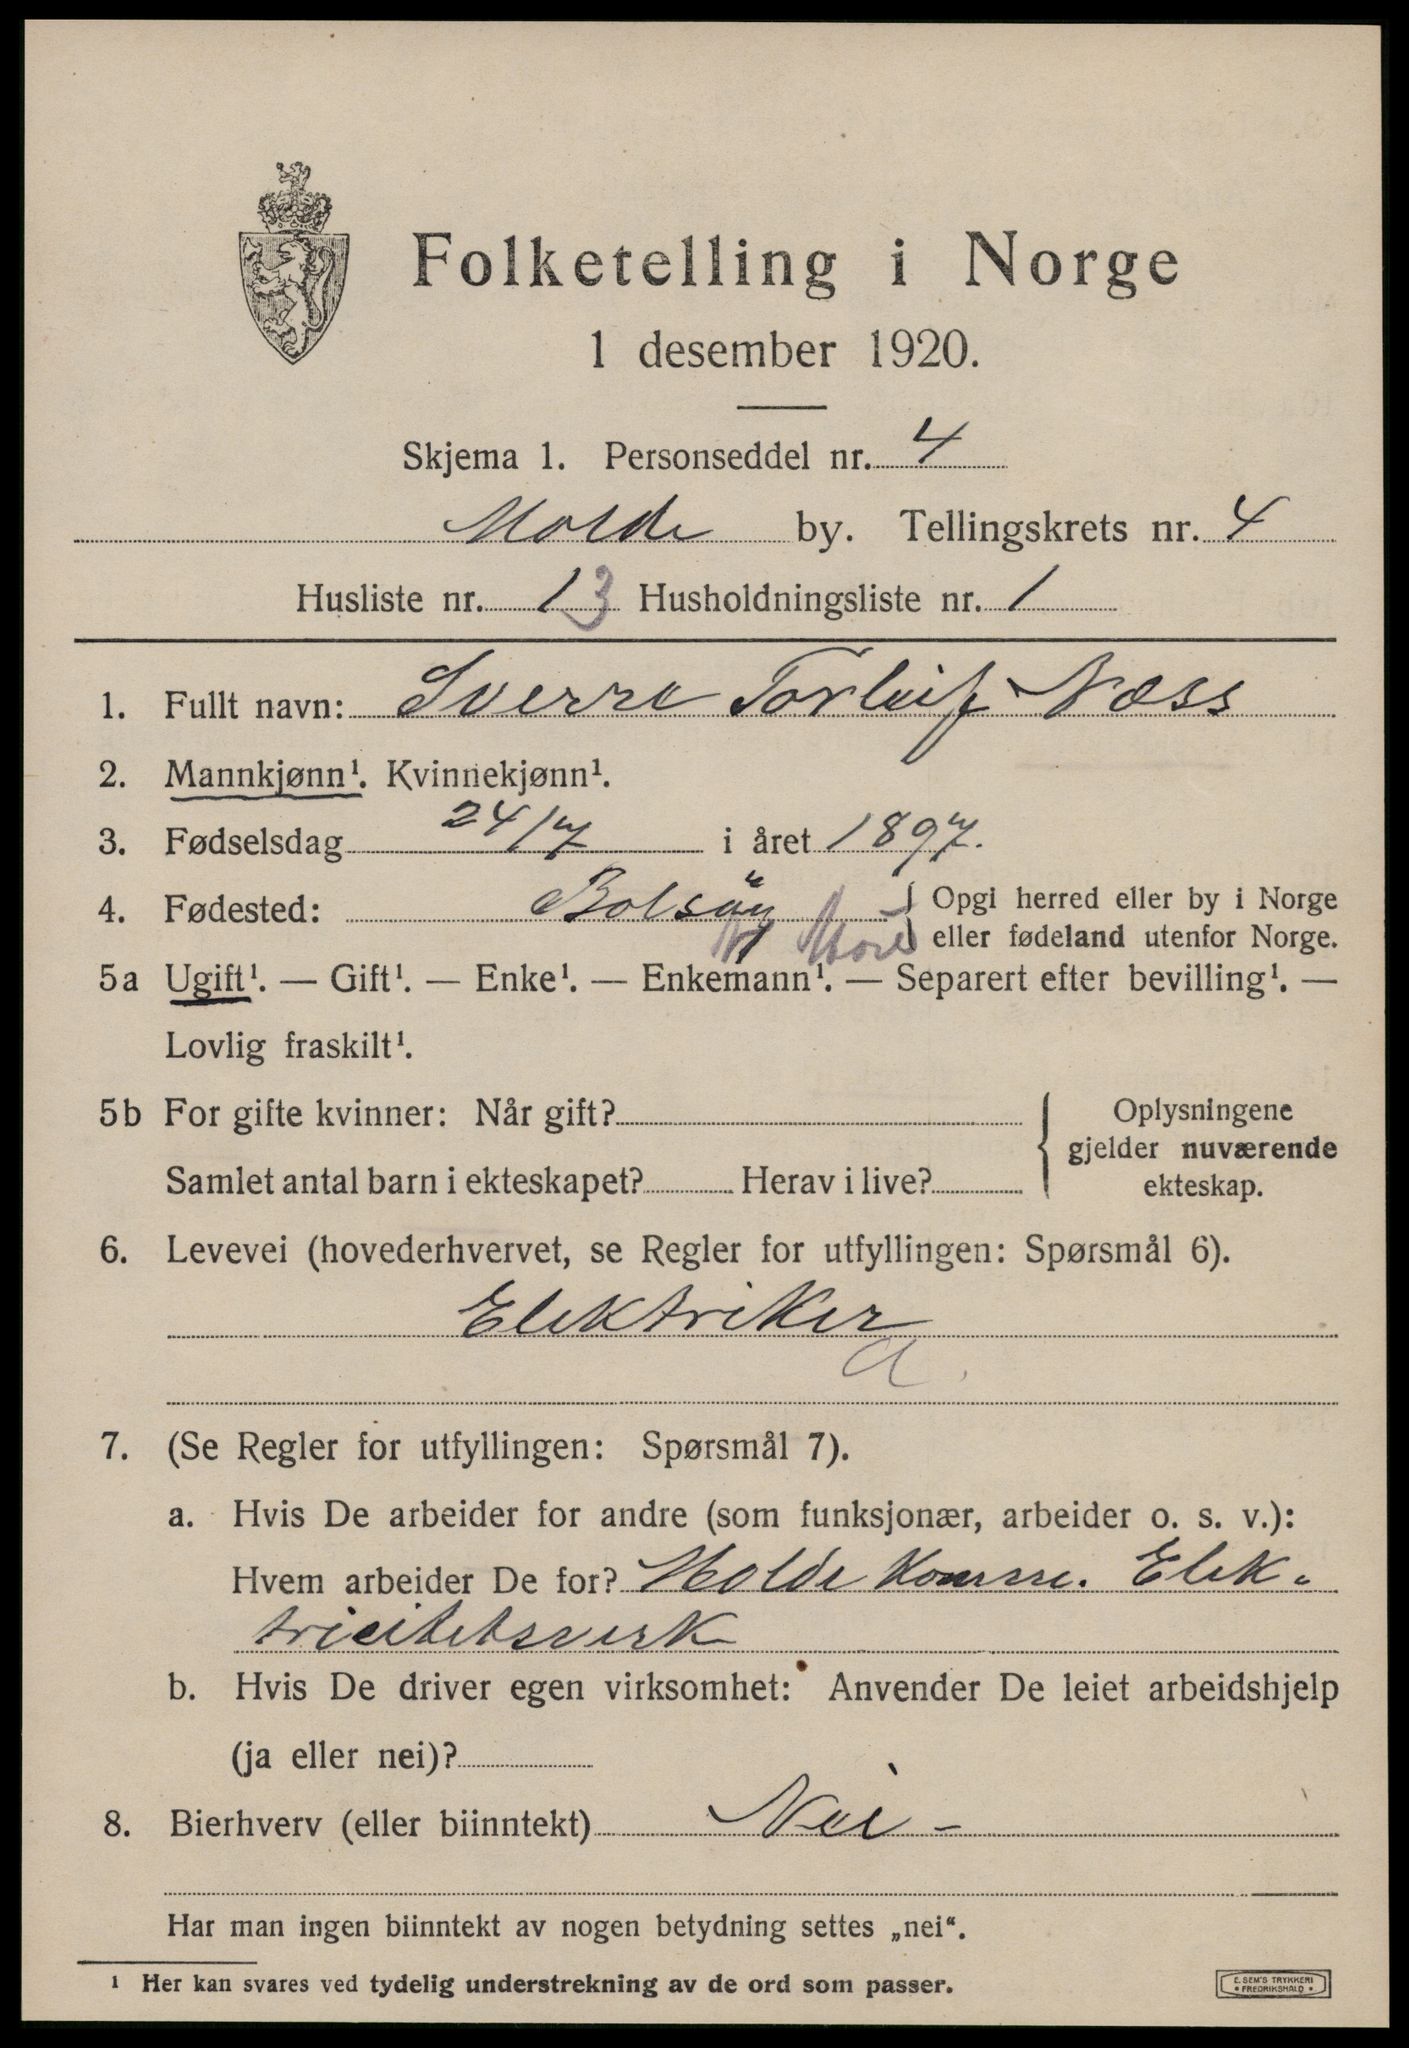 Folketelling i Norge
1 desember 1920.
Skjema 1. Personseddel nr. 4
Molde by. Tellingskrets nr. 4
Husliste nr. 13 Husholdningsliste nr. 1
1. Fullt navn: Sverre Torleif Næss
2. Mannkjønn¹. Kvinnekjønn¹.
3. Fødselsdag 24/7 i året 1897.
4. Fødested: Bolsöy { Opgi herred eller by i Norge
Møre eller fødeland utenfor Norge.
5a Ugift¹. — Gift¹. — Enke¹. — Enkemann¹. — Separert efter bevilling¹. —
Lovlig fraskilt¹.
5b For gifte kvinner: Når gift? { Oplysningene
gjelder nuværende
Samlet antal barn i ekteskapet? Herav i live? ekteskap.
6. Levevei (hovederhvervet, se Regler for utfyllingen: Spørsmål 6).
Elektriker
a.
7. (Se Regler for utfyllingen: Spørsmål 7).
a. Hvis De arbeider for andre (som funksjonær, arbeider o. s. v.):
Hvem arbeider De for? Molde Komm. Elek-
tricitetsverk
b. Hvis De driver egen virksomhet: Anvender De leiet arbeidshjelp
(ja eller nei)?
8. Bierhverv (eller biinntekt) Nei -
Har man ingen biinntekt av nogen betydning settes „nei“.
¹ Her kan svares ved tydelig understrekning av de ord som passer.
E. SEM'S TRYKKERI
• FREDRIKSHALD •